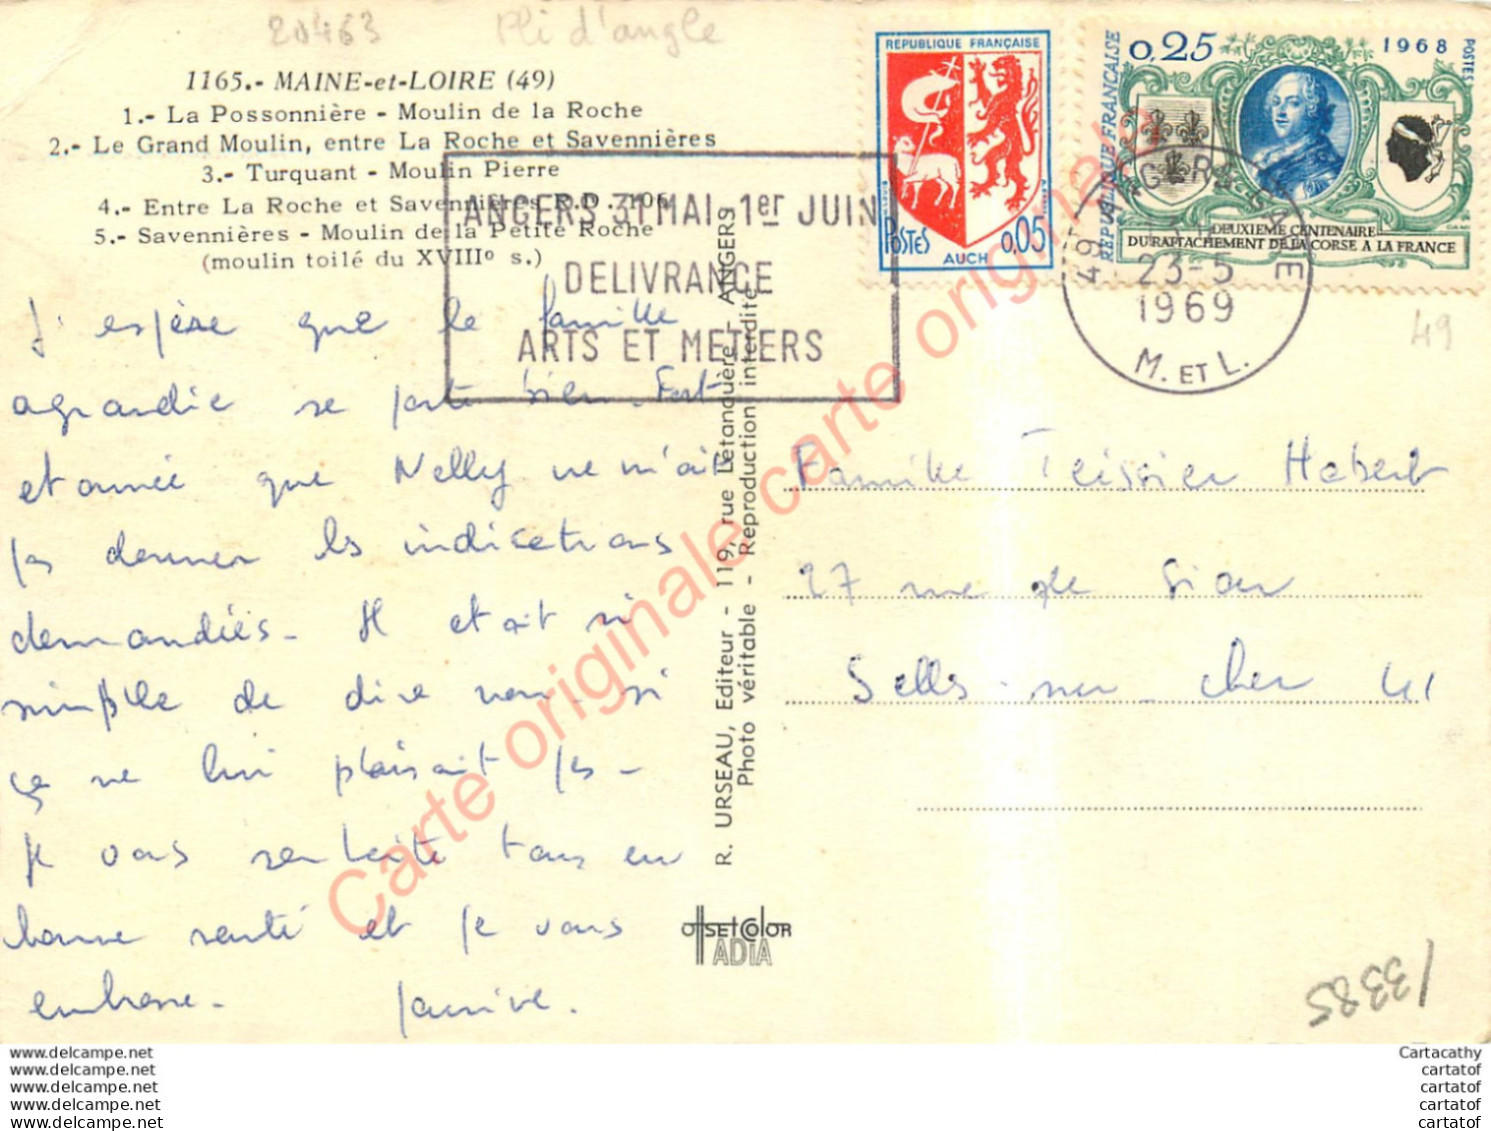 20463 Pli d'angle
1165.- MAINE-et-LOIRE (49)
1.- La Possonnière - Moulin de la Roche
2.- Le Grand Moulin, entre La Roche et Savennières
3.- Turquant - Moulin Pierre
4.- Entre La Roche et Savennières R.D. 106
5.- Savennières - Moulin de la Petite Roche
(moulin toilé du XVIII° s.)
ANGERS 31 MAI-1er JUIN
DELIVRANCE
ARTS ET METIERS
REPUBLIQUE FRANÇAISE
POSTES
0,05
AUCH
0,25
1968
POSTES
REPUBLIQUE FRANÇAISE
DEUXIEME CENTENAIRE
DU RATTACHEMENT DE LA CORSE A LA FRANCE
49 ANGERS GARE
23-5
1969
M. ET L.
49
J'espère que la famille
agrandie se porte bien. Fort
etonnée que Nelly ne m'ait
pas donner les indications
demandiés - Il etait si
simple de dire non si
ça ne lui plaisait pas -
Je vous souhaite tous en
bonne santé et je vous
embrasse -
Famille Teissier Habert
27 rue de Sion
Selles-sur-Cher 41
R. URSEAU, Editeur - 119, rue Létanduère - ANGERS
Photo véritable - Reproduction interdite
OffSET COLOR
ADIA
13385
Carte originale carte originale
www.delcampe.net
www.delcampe.net
www.delcampe.net
www.delcampe.net
www.delcampe.net
Cartacathy
cartatof
cartatof
cartatof
cartatof